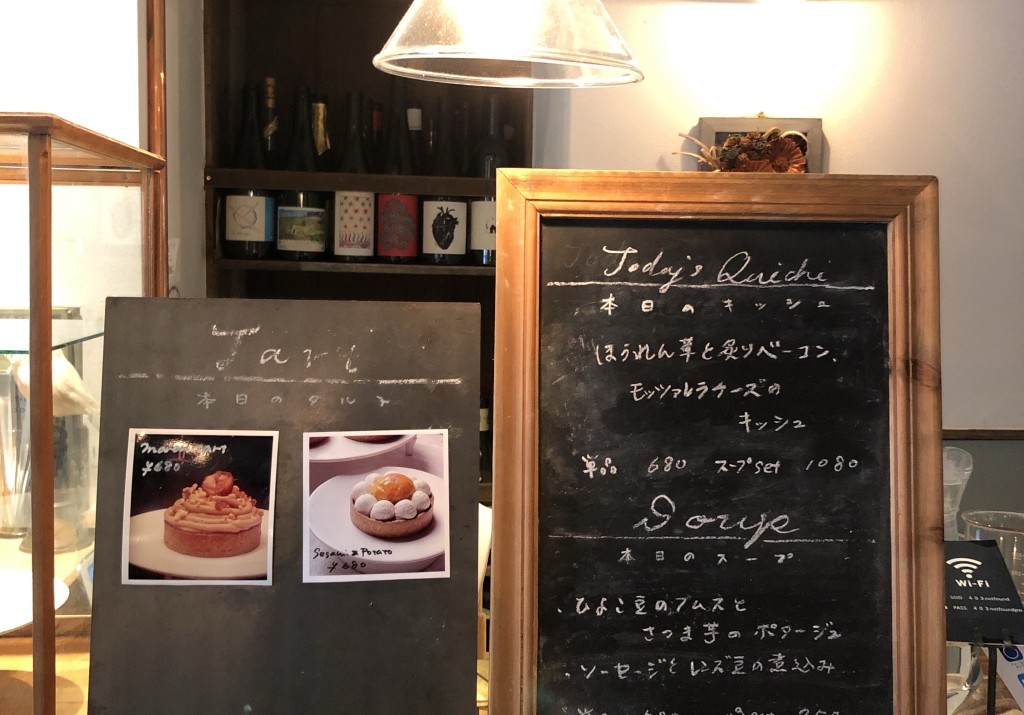 Tart
本日のタルト
¥680
Sesami & Potato
¥680
Today's Quichi
本日のキッシュ
ほうれん草と炙りベーコン、
モッツァレラチーズの
キッシュ
単品 680 スープset 1080
Soupe
本日のスープ
・ひよこ豆のフムスと
さつま芋のポタージュ
・ソーセージとレンズ豆の煮込み
Wi-Fi
SSID 403netfound